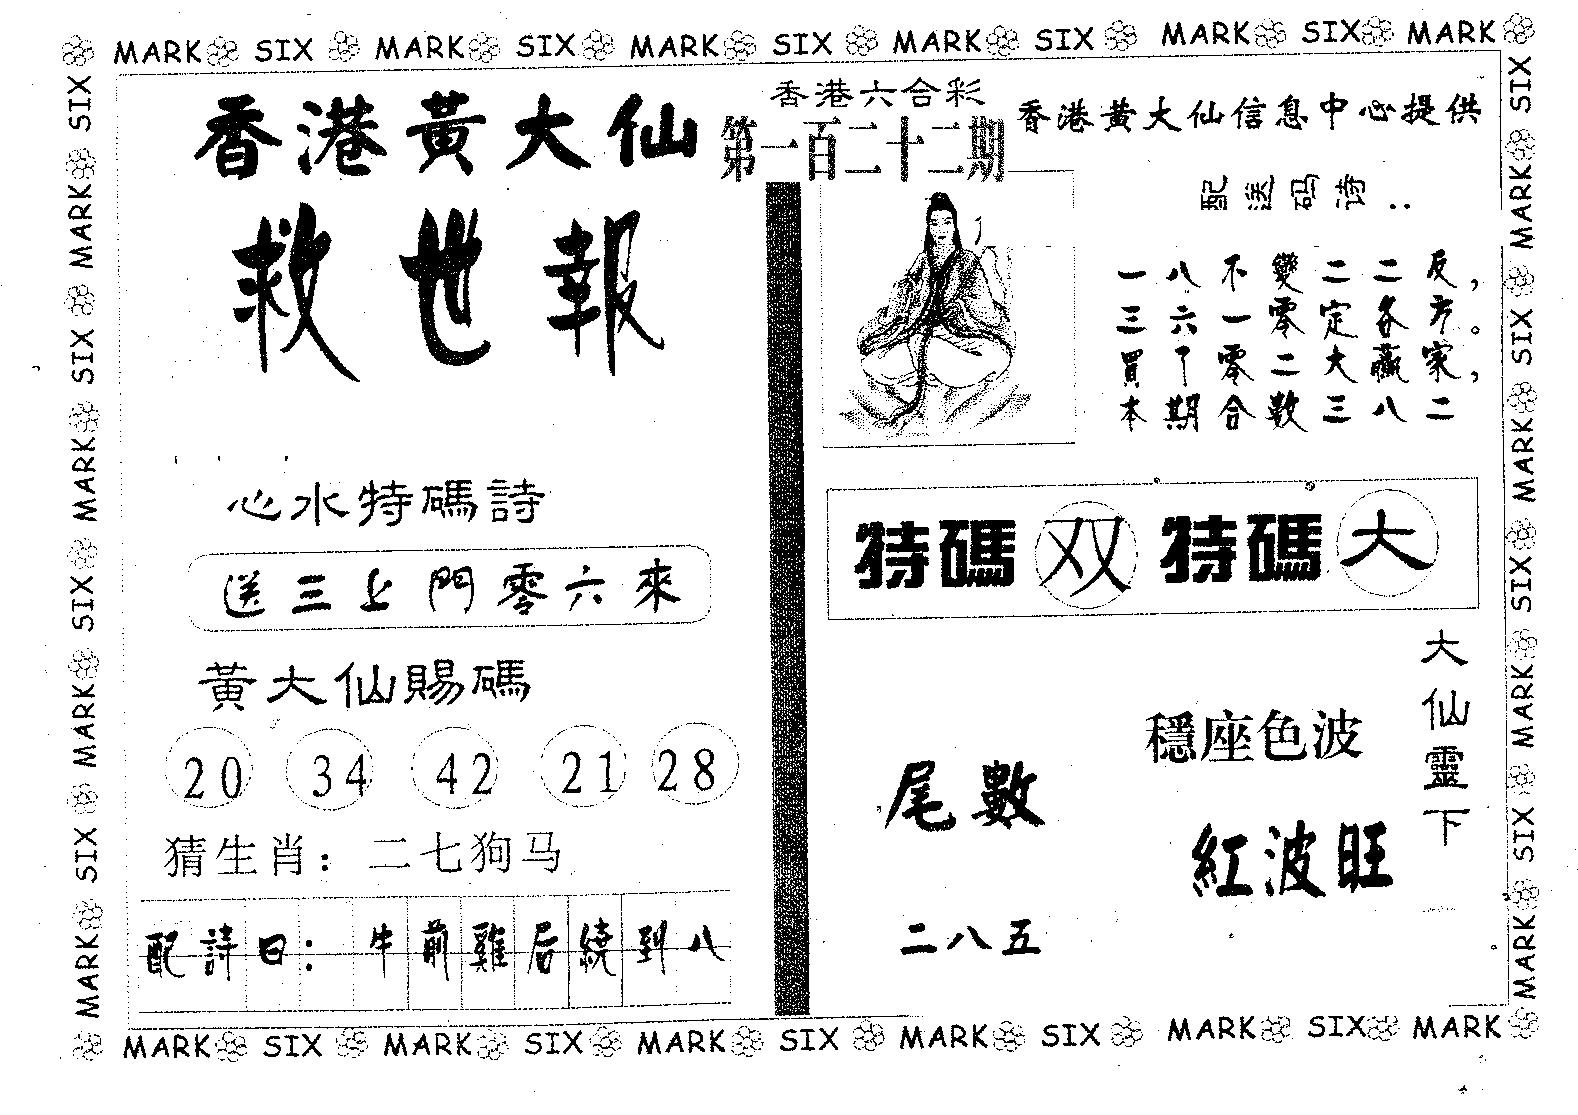 MARK SIX MARK SIX MARK SIX MARK SIX MARK SIX MARK
香港黃大仙
救世報
香港六合彩
第一百二十二期
香港黃大仙信息中心提供
配送码诗..
一八不變二二反，
三六一零定各方。
買丁零二大贏家，
本期合數三八二
心水特碼詩
送三上門零六來
特碼双 特碼大
黃大仙賜碼
20 34 42 21 28
猜生肖：二七狗马
配詩曰：牛前雞后繞到八
尾數
二八五
穩座色波
紅波旺
大仙靈下
SIX MARK SIX MARK SIX MARK SIX MARK
SIX MARK SIX MARK SIX MARK SIX MARK
MARK SIX MARK SIX MARK SIX MARK SIX MARK SIX MARK